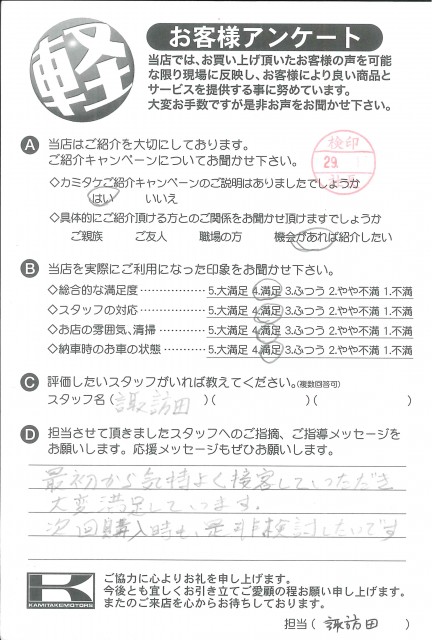 軽
お客様アンケート
当店では、お買い上げ頂いたお客様の声を可能
な限り現場に反映し、お客様により良い商品と
サービスを提供する事に努めています。
大変お手数ですが是非お声をお聞かせ下さい。
A 当店はご紹介を大切にしております。
ご紹介キャンペーンについてお聞かせ下さい。
検印
29.
◇カミタケご紹介キャンペーンのご説明はありましたでしょうか
はい いいえ
◇具体的にご紹介頂ける方とのご関係をお聞かせ頂けますでしょうか
ご親族 ご友人 職場の方 機会があれば紹介したい
B 当店を実際にご利用になった印象をお聞かせ下さい。
◇総合的な満足度 ‥‥‥‥‥ 5.大満足 4.満足 3.ふつう 2.やや不満 1.不満
◇スタッフの対応 ‥‥‥‥‥ 5.大満足 4.満足 3.ふつう 2.やや不満 1.不満
◇お店の雰囲気、清掃 ‥‥‥ 5.大満足 4.満足 3.ふつう 2.やや不満 1.不満
◇納車時のお車の状態 ‥‥‥ 5.大満足 4.満足 3.ふつう 2.やや不満 1.不満
C 評価したいスタッフがいれば教えてください。(複数回答可)
スタッフ名( 諏訪田 )( )( )
D 担当させて頂きましたスタッフへのご指摘、ご指導メッセージを
お願いします。応援メッセージもぜひお願いします。
最初から気持よく接客していただき
大変満足しています。
次回購入時も、是非検討したいです
K
KAMITAKEMOTORS
ご協力に心よりお礼を申し上げます。
今後とも宜しくお引き立てご愛顧の程お願い申し上げます。
またのご来店を心からお待ちしております。
担当( 諏訪田 )